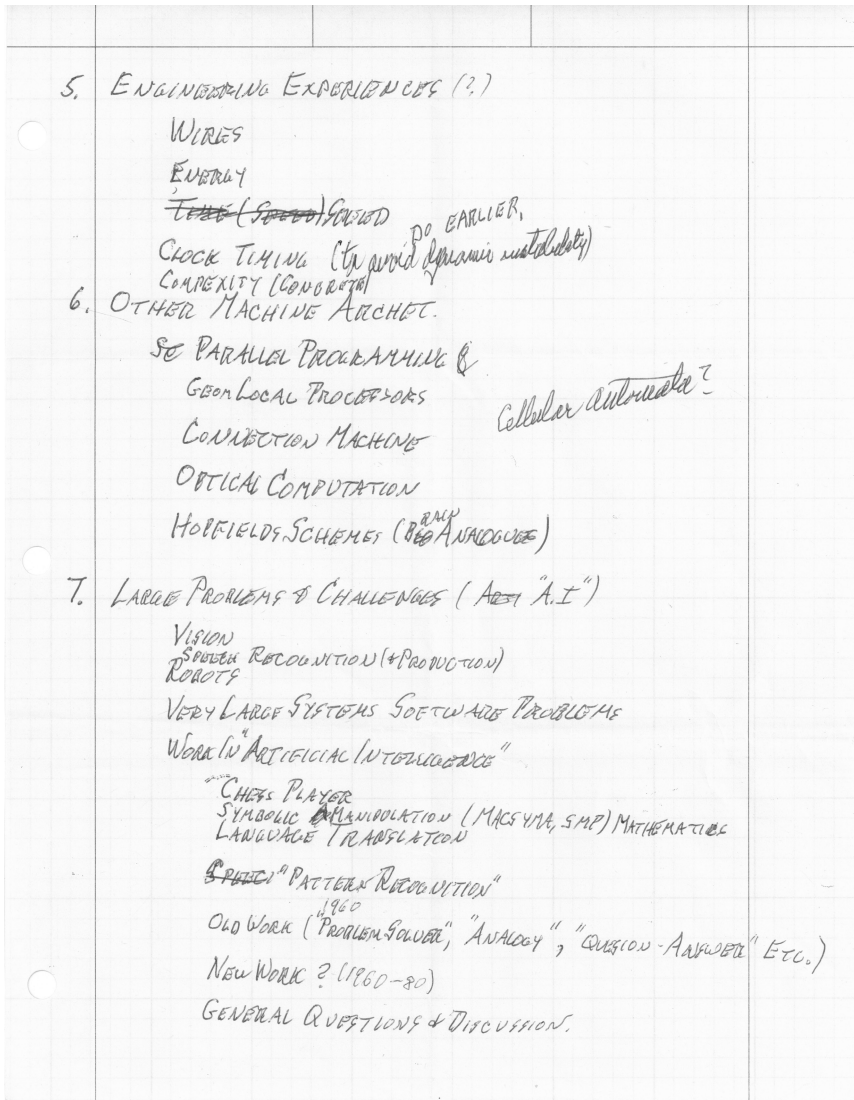 5. ENGINEERING EXPERIENCES (?)
WIRES
ENERGY
TIME (SPEED) SPEED
DO EARLIER,
CLOCK TIMING (to avoid dynamic instability)
COMPEXITY (CONCRETE)
6. OTHER MACHINE ARCHET.
PARALLEL PROGRAMMING &
GEOM LOCAL PROCESSORS
Cellular automata?
CONNECTION MACHINE
OPTICAL COMPUTATION
HOPFIELDS SCHEMES (ANALOGUE)
7. LARGE PROBLEMS & CHALLENGES ( "A.I")
VISION
SPEECH RECOGNITION (& PRODUCTION)
ROBOTS
VERY LARGE SYSTEMS SOFTWARE PROBLEMS
WORK IN "ARTIFICIAL INTELLIGENCE"
CHESS PLAYER
SYMBOLIC MANIPULATION (MACSYMA, SMP) MATHEMATICS
LANGUAGE TRANSLATION
SPEECH "PATTERN RECOGNITION"
1960
OLD WORK ("PROBLEM SOLVER", "ANALOGY", "QUESION-ANSWER" ETC.)
NEW WORK ? (1960-80)
GENERAL QUESTIONS & DISCUSSION.